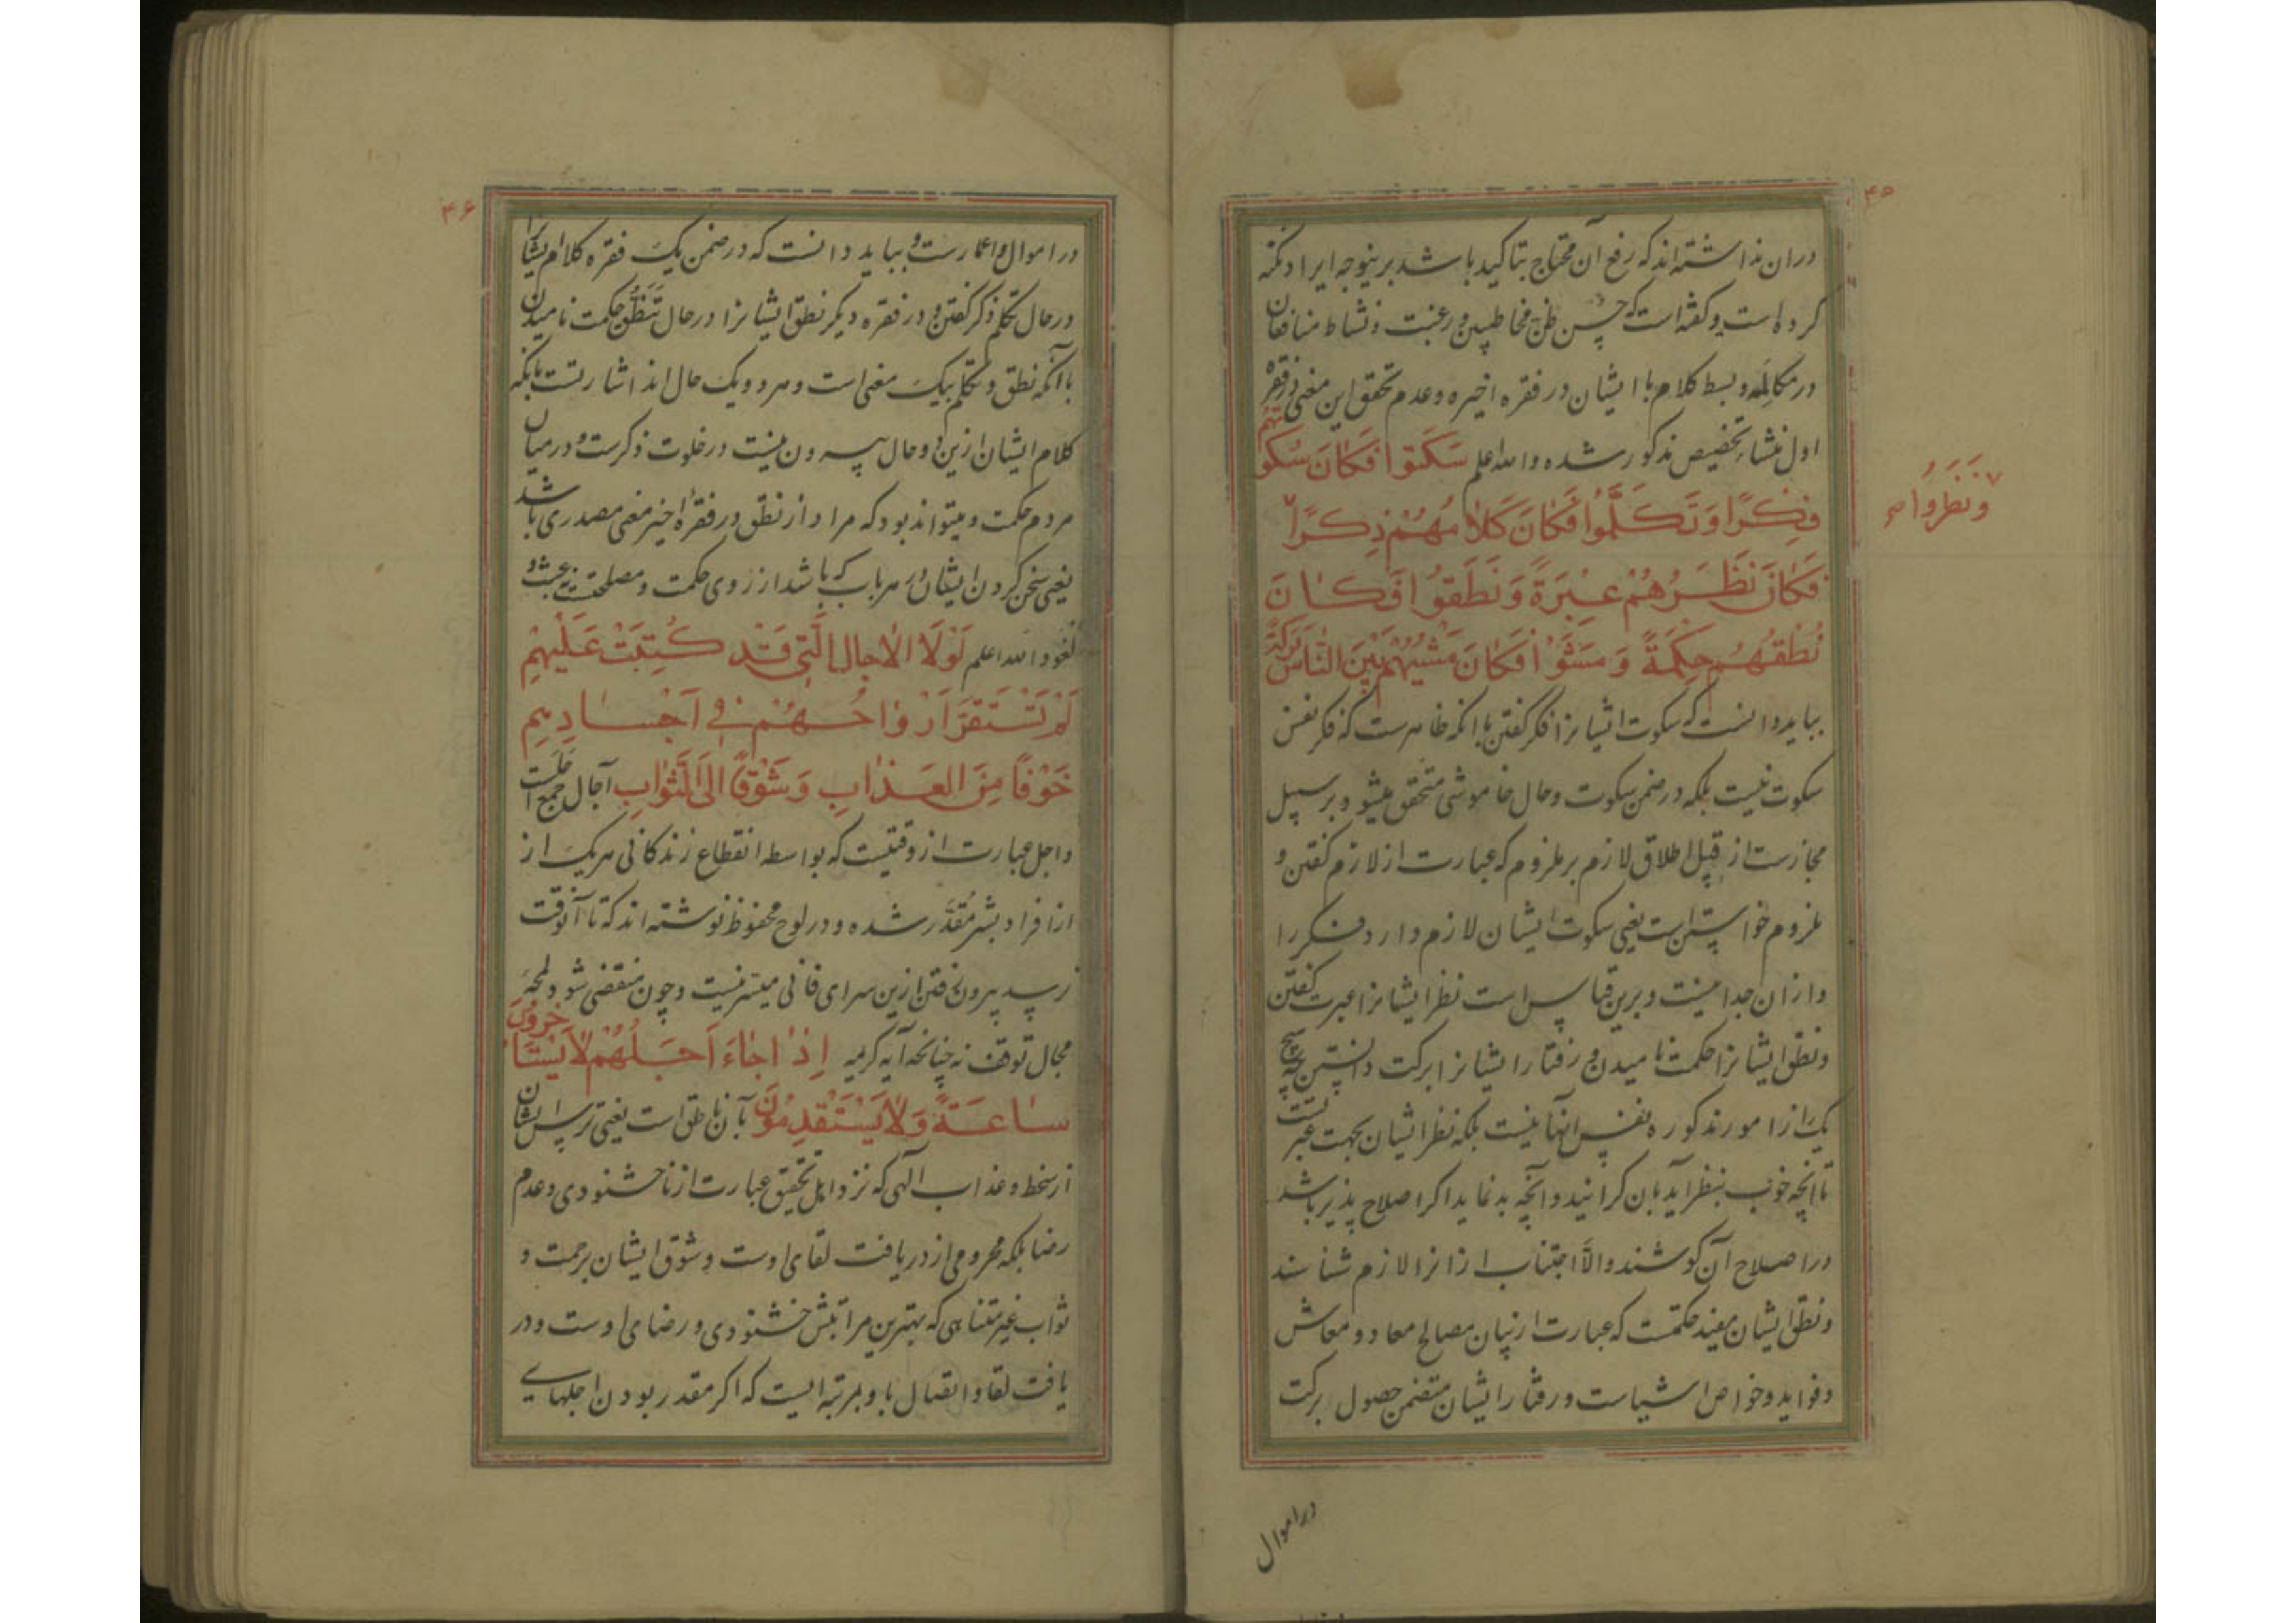 ۴۵
دران نداشته‌اند که رفع آن محتاج بتاکید باشد برینوجه ایراد نکته
کرده است و گفته است که حسن ظن مخاطبین و رغبت و نشاط منافقان
در مکالمه و بسط کلام با ایشان در فقره اخیره و عدم تحقق این معنی در فقره
اول منشاء تخصیص مذکور شده والله اعلم سَكَتوا فَكَانَ سُكوتهم
فِكْرًا وَتَكَلَّمُوا فَكَانَ كَلامُهُمْ ذِكْرًا
ونَظَرُوا صح
فَكَانَ نَظَرُهُمْ عِبْرَةً وَنَطَقُوا فَكَانَ
نُطْقُهُم حِكْمَةً وَمَشَوْا فَكَانَ مَشْيُهُمْ بَيْنَ النَّاسِ بَرَكَةً
بباید دانست که سکوت ایشانرا فکر گفتن باانکه ظاهرست که فکر نفس
سکوت نیست بلکه در ضمن سکوت و حال خاموشی متحقق میشود بر سبیل
مجازست از قبیل اطلاق لازم بر ملزوم که عبارت از لازم گفتن و
ملزوم خواستن است یعنی سکوت ایشان لازم دارد فکر را
و ازان جدا نیست و برین قیاس است نظر ایشانرا عبرت گفتن
و نطق ایشانرا حکمت نامیدن و رفتار ایشانرا برکت دانستن چه هیچ
یک از امور مذکوره نفس انها نیست بلکه نظر ایشان بجهت عبرتست
تا انچه خوب بنظر آید بان گرانید و انچه بد نماید اگر اصلاح پذیر باشد
در اصلاح آن کوشند و الّا اجتناب ازانرا لازم شناسند
و نطق ایشان مفید حکمتست که عبارت از بیان مصالح معاد و معاش
و فواید و خواص اشیاست و رفتار ایشان متضمن حصول برکت
در اموال
۴۶
در اموال و اعمارست و بباید دانست که در ضمن یک فقره کلام ایشانرا
در حال تکلم ذکر گفتن و در فقره دیگر نطق ایشانرا در حال تَنَطُّق حکمت نامیدن
با آنکه نطق و تکلم بیک معنی است و هر دو یک حال اند اشارتست بانکه
کلام ایشان ازین دو حال بیرون نیست در خلوت ذکرست و در میان
مردم حکمت و میتواند بود که مراد از نطق در فقرهٔ اخیر معنی مصدری باشد
یعنی سخن کردن ایشان در هر باب که باشد از روی حکمت و مصلحتست نه عبث و
لغو والله اعلم لَوْلَا الاجال الَّتِي قَد كُتِبَتْ عَلَيْهِمْ
لَمْ تَسْتَقِرَّ اَرْوَاحُهُمْ فِي اَجْسَادِهِم
خَوْفًا مِنَ العَذَابِ وَشَوْقًا اِلَى الثَّوابِ آجال جمع اجلست
و اجل عبارت از وقتیست که بواسطه انقطاع زندکانی هر یک از
از افراد بشر مُقدَّر شده و در لوح محفوظ نوشته‌اند که تا آنوقت
نرسد بیرون رفتن ازین سرای فانی میسر نیست و چون منقضی شود لمحهٔ
مجال توقف نه چنانچه آیه کریمه اِذَا جَاءَ اَجَلُهُمْ لَا يَسْتَأخِرُونَ
سَاعَةً وَلَا يَسْتَقْدِمُونَ بآن ناطق است یعنی ترس ایشان
از سخط و عذاب آلهی که نزد اهل تحقیق عبارت از ناخشنودی و عدم
رضا بلکه محرومی از دریافت لقای اوست و شوق ایشان برحمت و
ثواب غیر متناهی که بهترین مراتبش خشنودی و رضای اوست و در
یافت لقا و اتصال باو بمرتبه ایست که اگر مقدر بودن اجلهای